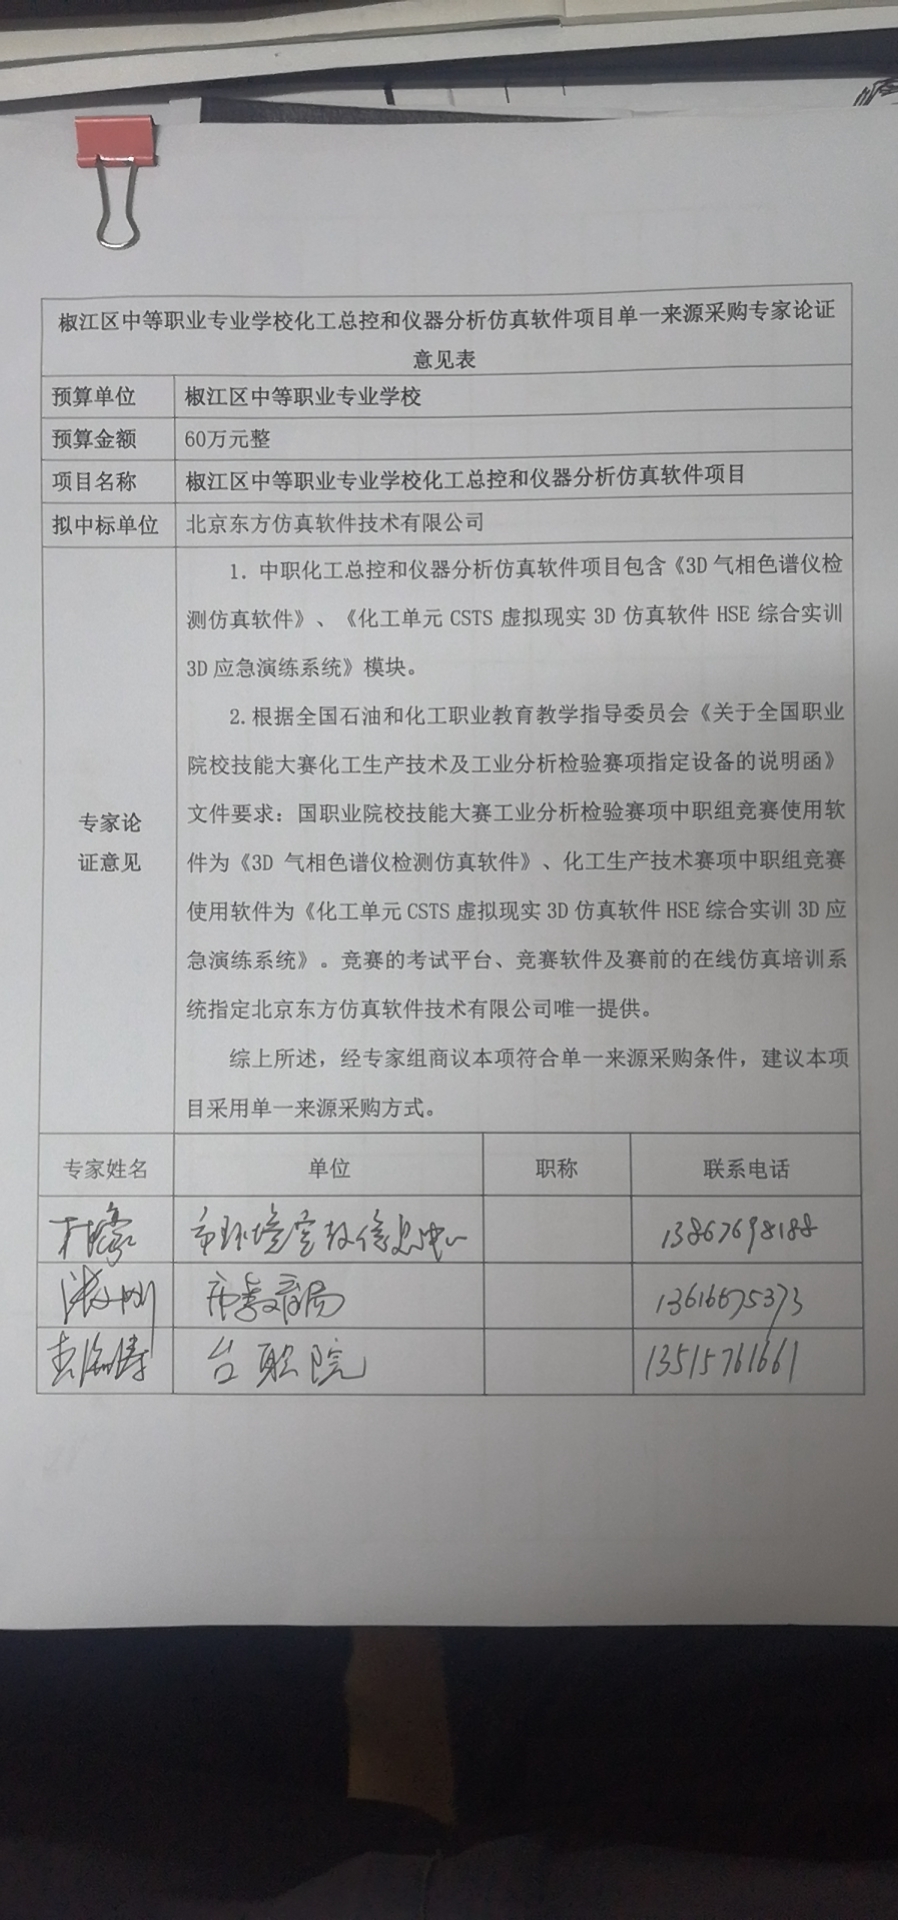 椒江区中等职业专业学校化工总控和仪器分析仿真软件项目单一来源采购专家论证
意见表
预算单位 椒江区中等职业专业学校
预算金额 60万元整
项目名称 椒江区中等职业专业学校化工总控和仪器分析仿真软件项目
拟中标单位 北京东方仿真软件技术有限公司
专家论
证意见
1. 中职化工总控和仪器分析仿真软件项目包含《3D 气相色谱仪检
测仿真软件》、《化工单元 CSTS 虚拟现实 3D 仿真软件 HSE 综合实训
3D 应急演练系统》模块。
2. 根据全国石油和化工职业教育教学指导委员会《关于全国职业
院校技能大赛化工生产技术及工业分析检验赛项指定设备的说明函》
文件要求：国职业院校技能大赛工业分析检验赛项中职组竞赛使用软
件为《3D 气相色谱仪检测仿真软件》、化工生产技术赛项中职组竞赛
使用软件为《化工单元 CSTS 虚拟现实 3D 仿真软件 HSE 综合实训 3D 应
急演练系统》。竞赛的考试平台、竞赛软件及赛前的在线仿真培训系
统指定北京东方仿真软件技术有限公司唯一提供。
综上所述，经专家组商议本项符合单一来源采购条件，建议本项
目采用单一来源采购方式。
专家姓名 单位 职称 联系电话
杜豪 市环境宣教信息中心 13867698188
市教育局 13616675373
台职院 13515761661